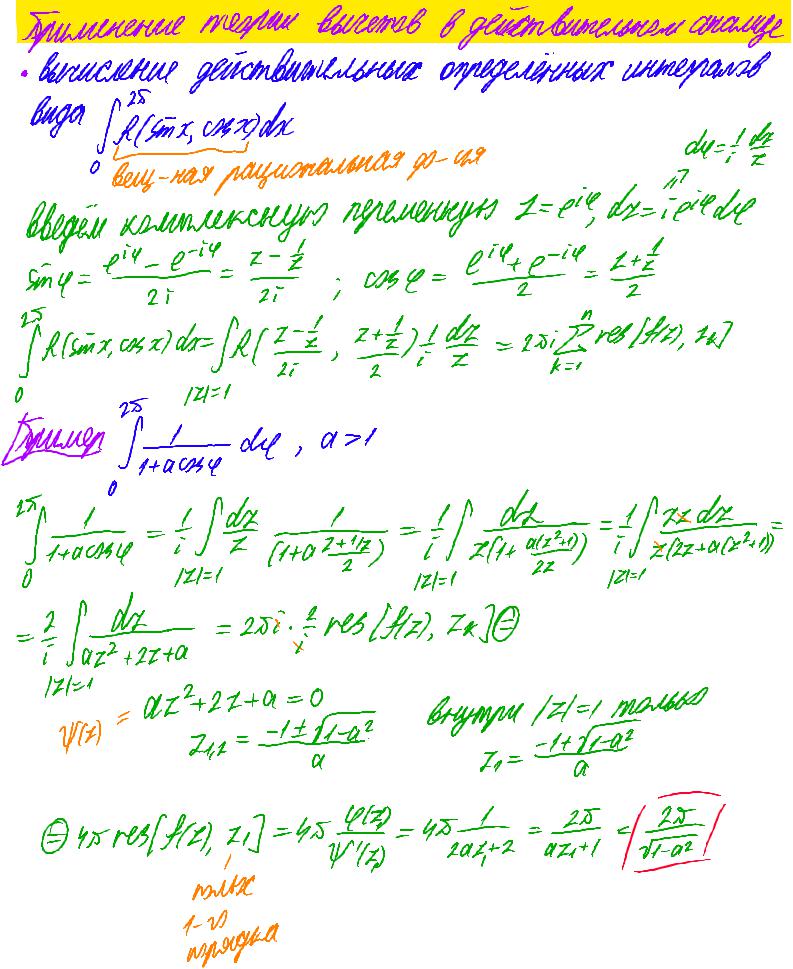 Применение теории вычетов в действительном анализе
• вычисление действительных определённых интегралов
вида ∫₀^{2π} R(sin x, cos x) dx
вещ-ная рациональная ф-ция
dφ = 1/i dz/z
введём комплексную переменную z = e^{iφ}, dz = i e^{iφ} dφ
sin φ = (e^{iφ} − e^{−iφ})/2i = (z − 1/z)/2i ; cos φ = (e^{iφ} + e^{−iφ})/2 = (z + 1/z)/2
∫₀^{2π} R(sin x, cos x) dx = ∫_{|z|=1} R((z − 1/z)/2i, (z + 1/z)/2) 1/i dz/z = 2πi ∑_{k=1}^{n} res[f(z), z_k]
Пример ∫₀^{2π} 1/(1 + a cos φ) dφ, a > 1
∫₀^{2π} 1/(1 + a cos φ) = 1/i ∫_{|z|=1} dz/z 1/(1 + a (z + 1/z)/2) = 1/i ∫_{|z|=1} dz/(z(1 + a(z² + 1)/2z)) = 1/i ∫_{|z|=1} 2z dz/(z(2z + a(z² + 1))) =
= 2/i ∫_{|z|=1} dz/(az² + 2z + a) = 2πi · 2/i res[f(z), z_k] ⊜
ψ(z) = az² + 2z + a = 0
внутри |z| = 1 только
z_{1,2} = (−1 ± √(1 − a²))/a
z₁ = (−1 + √(1 − a²))/a
⊜ 4π res[f(z), z₁] = 4π φ(z₁)/ψ'(z₁) = 4π 1/(2az₁ + 2) = 2π/(az₁ + 1) = 2π/√(1 − a²)
полюс
1-го
порядка